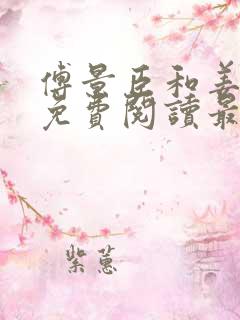 傅景臣和姜
免費閱讀最
紫蕙